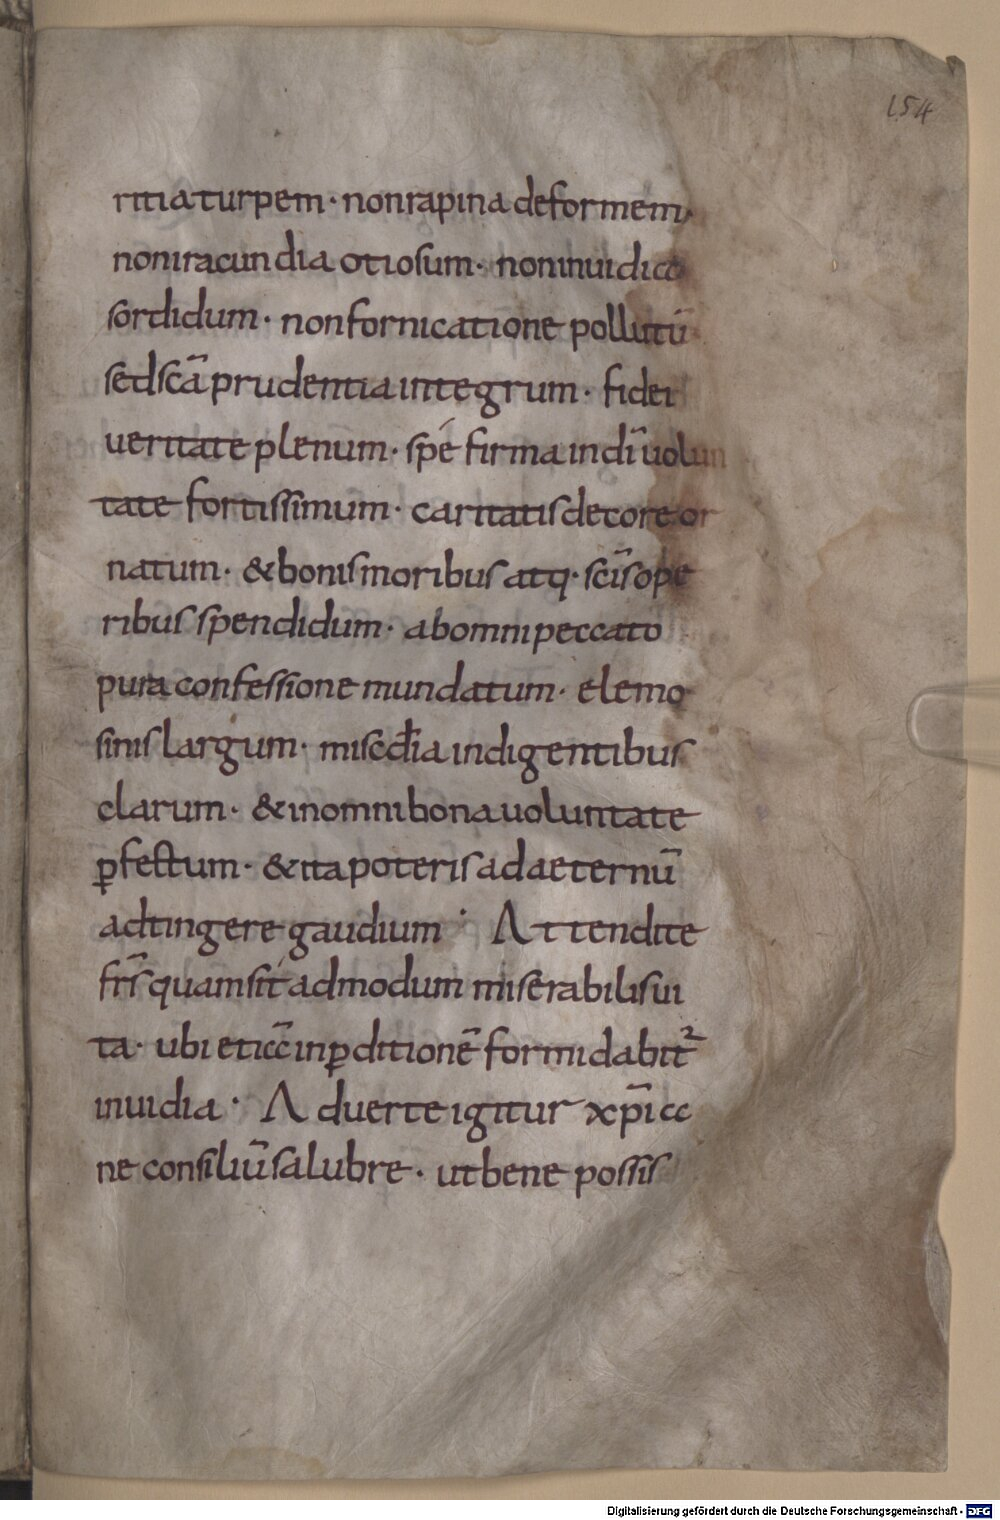 154
ritia turpem · non rapina deformem
non iracundia otiosum · non inuidia
sordidum · non fornicatione pollutū
sed scā prudentia integrum · fidei
ueritate plenum · spé firma in dī uolun
tate fortissimum · caritatis decore or
natum · & bonis moribus atq· scīs ope
ribus spendidum · ab omni peccato
pura confessione mundatum · elemo
sinis largum · miscdīa indigentibus
clarum · & in omni bona uoluntate
ꝑfectum · & ita poteris ad aeternū
adtingere gaudium · Attendite
frs̄ quam sit admodum miserabilis ui
ta · ubi etiā in ꝑditionē formidabit᷑
inuidia · Aduerte igitur xp̄ia
ne consiliū salubre · ut bene possis
Digitalisierung gefördert durch die Deutsche Forschungsgemeinschaft - DFG